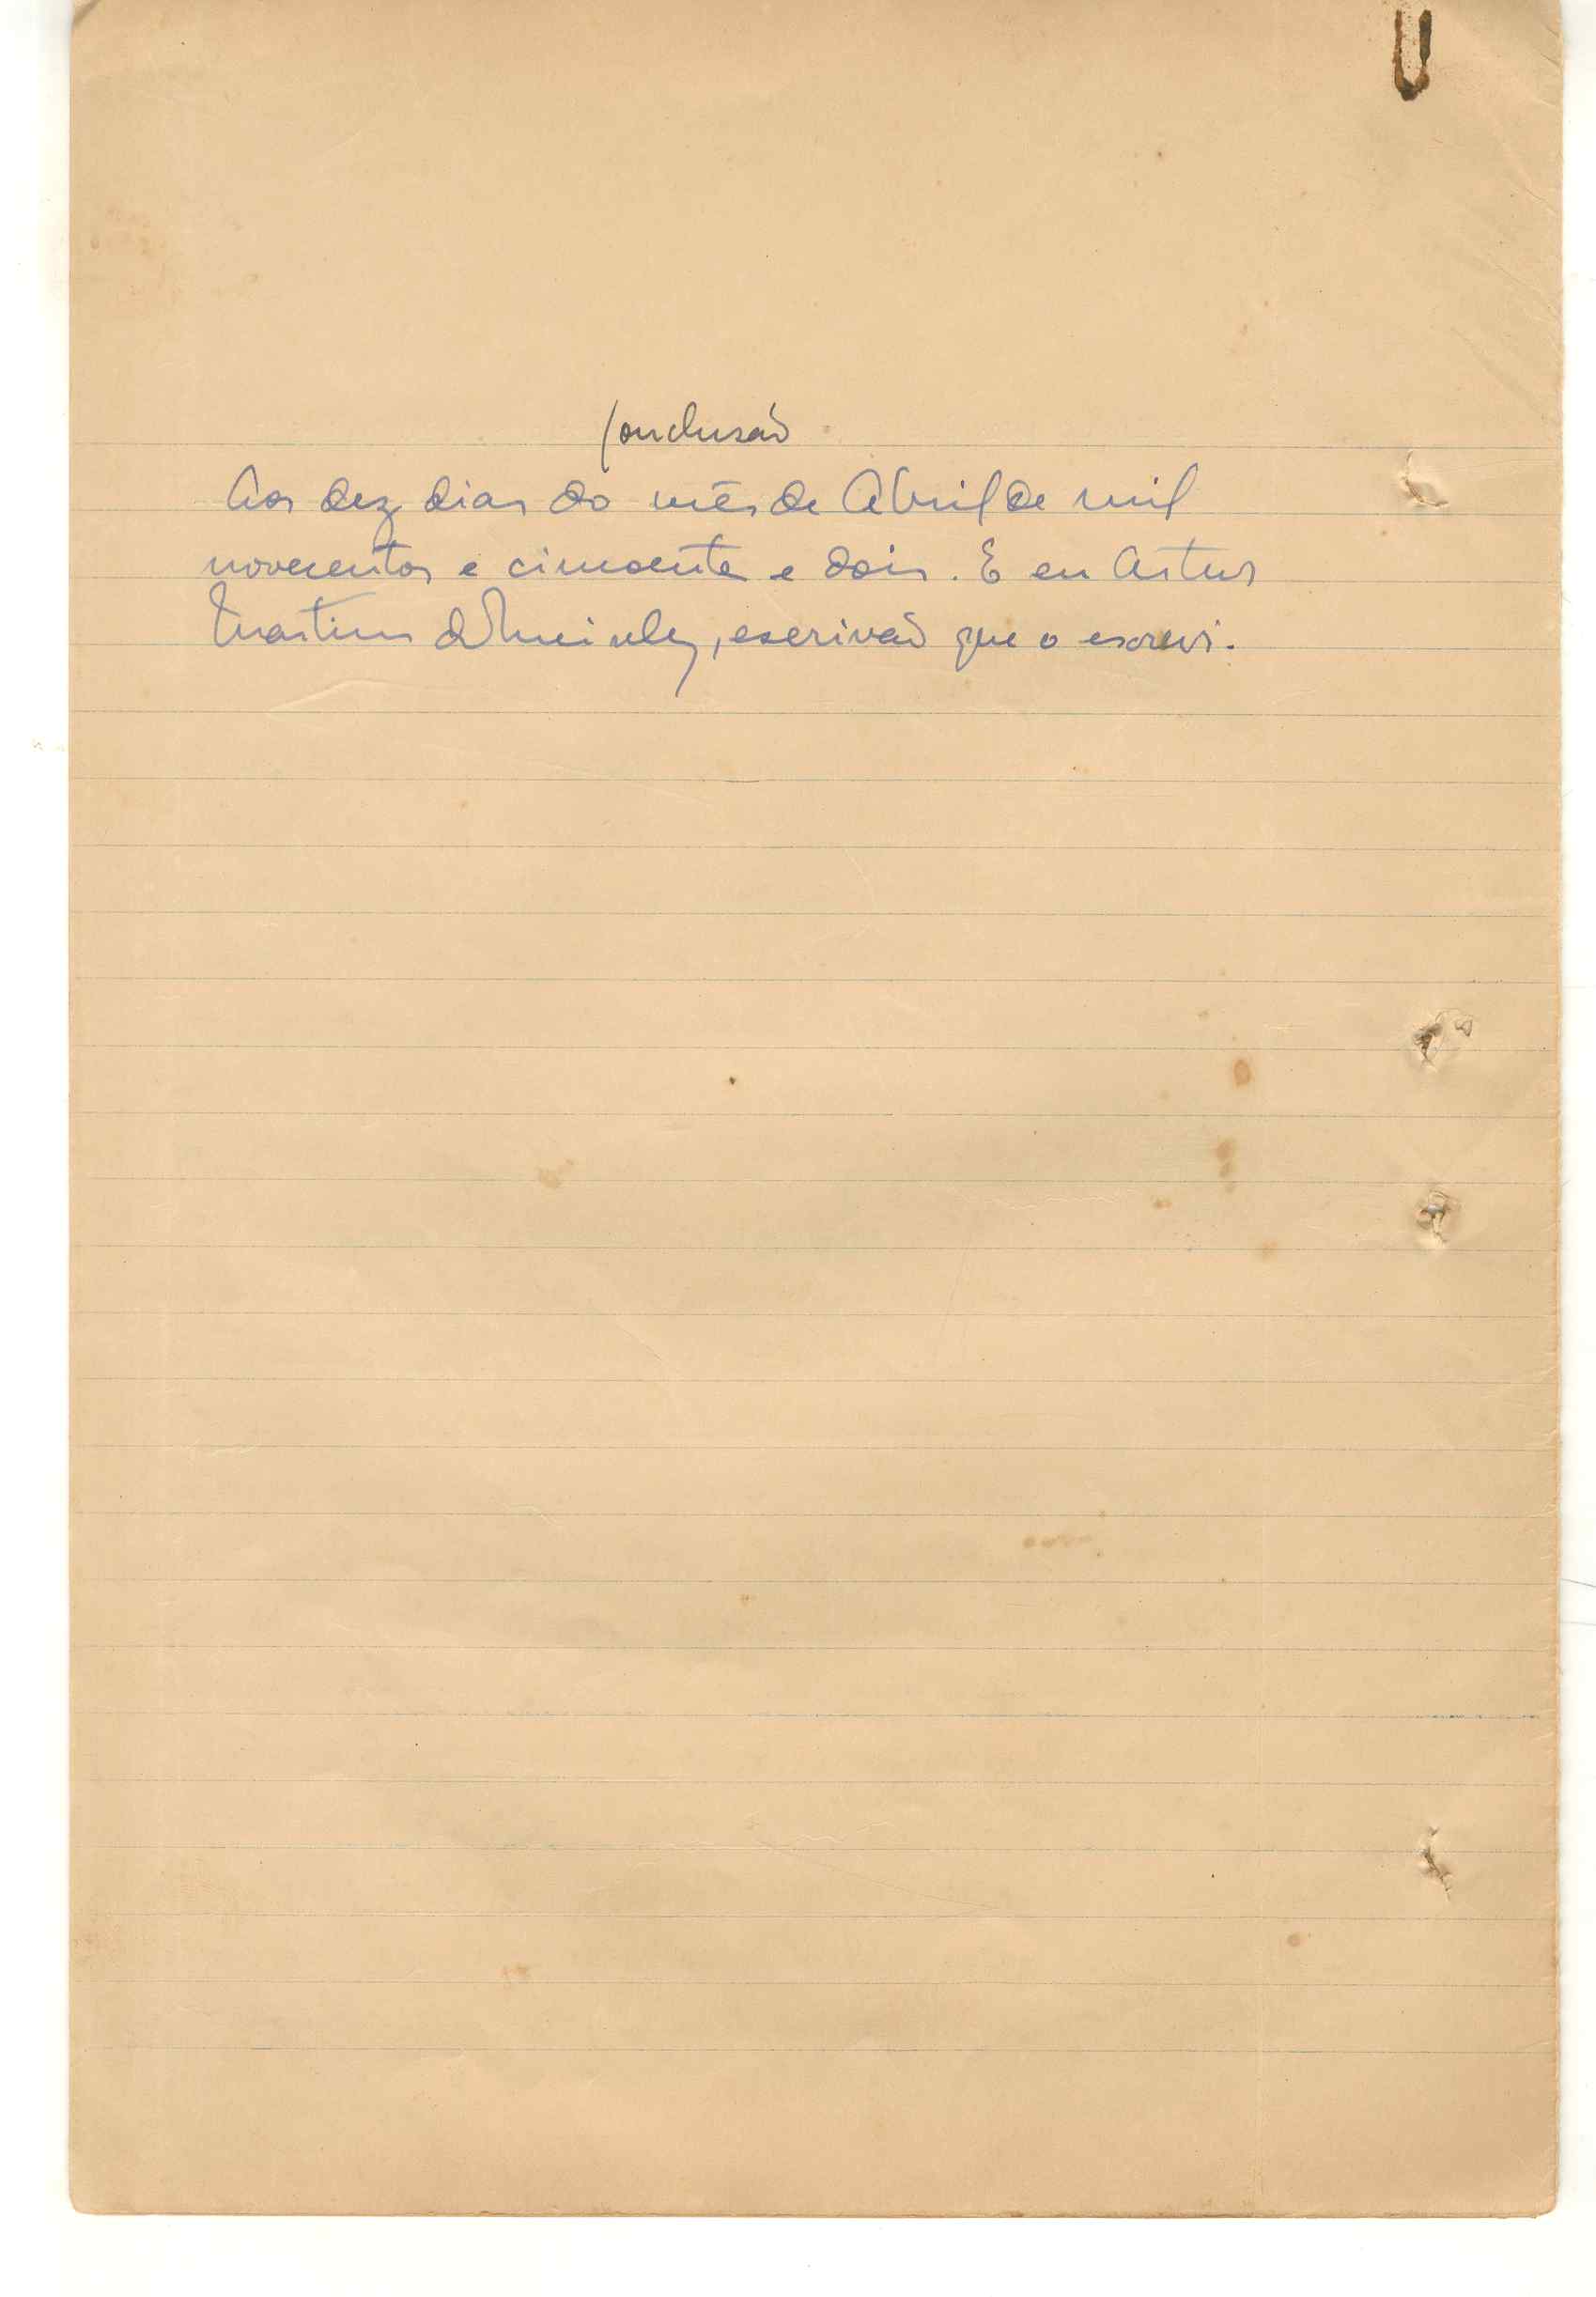 Conclusão
Aos dez dias do mês de Abril de mil
novecentos e cincoenta e dois. E eu Artur
Martins d'Almeida, escrivão que o escrevi.